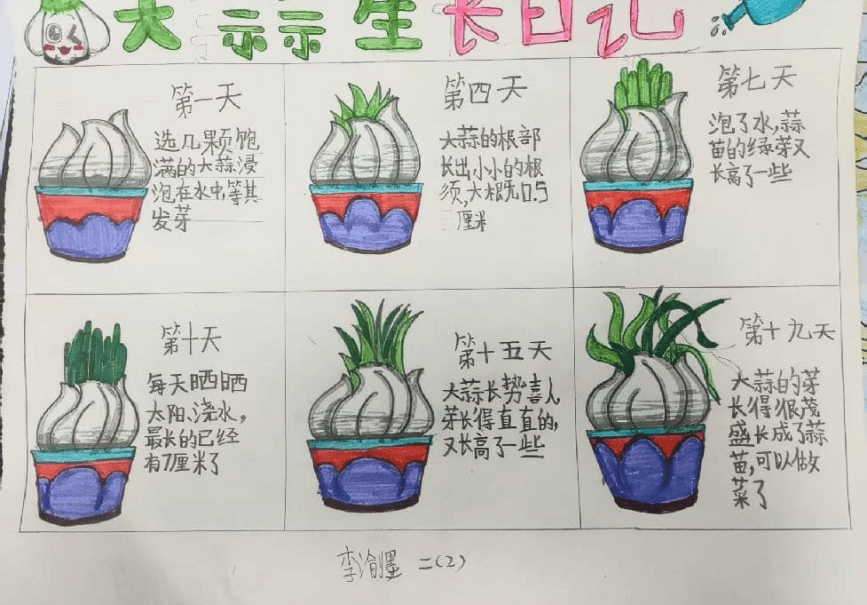 大蒜生长日记
第一天
选几颗饱
满的大蒜浸
泡在水中,等其
发芽
第四天
大蒜的根部
长出小小的根
须,大概有0.5
厘米
第七天
泡了水,蒜
苗的绿芽又
长高了一些
第十天
每天晒晒
太阳、浇水,
最长的已经
有7厘米了
第十五天
大蒜长势喜人
芽长得直直的,
又长高了一些
第十九天
大蒜的芽
长得很茂
盛长成了蒜
苗,可以做
菜了
李渝墨 二(2)